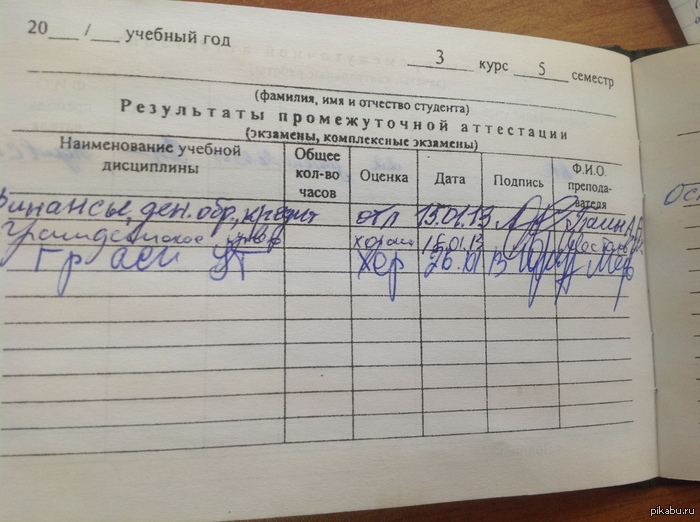 20___/___ учебный год
3 курс 5 семестр
(фамилия, имя и отчество студента)
Результаты промежуточной аттестации
(экзамены, комплексные экзамены)
Наименование учебной дисциплины Общее кол-во часов Оценка Дата Подпись Ф.И.О. препода-вателя
Финансы, ден. обр., кредит отл 15.01.13
Гражданское хорош 16.01.13
хор 26.01 13
pikabu.ru